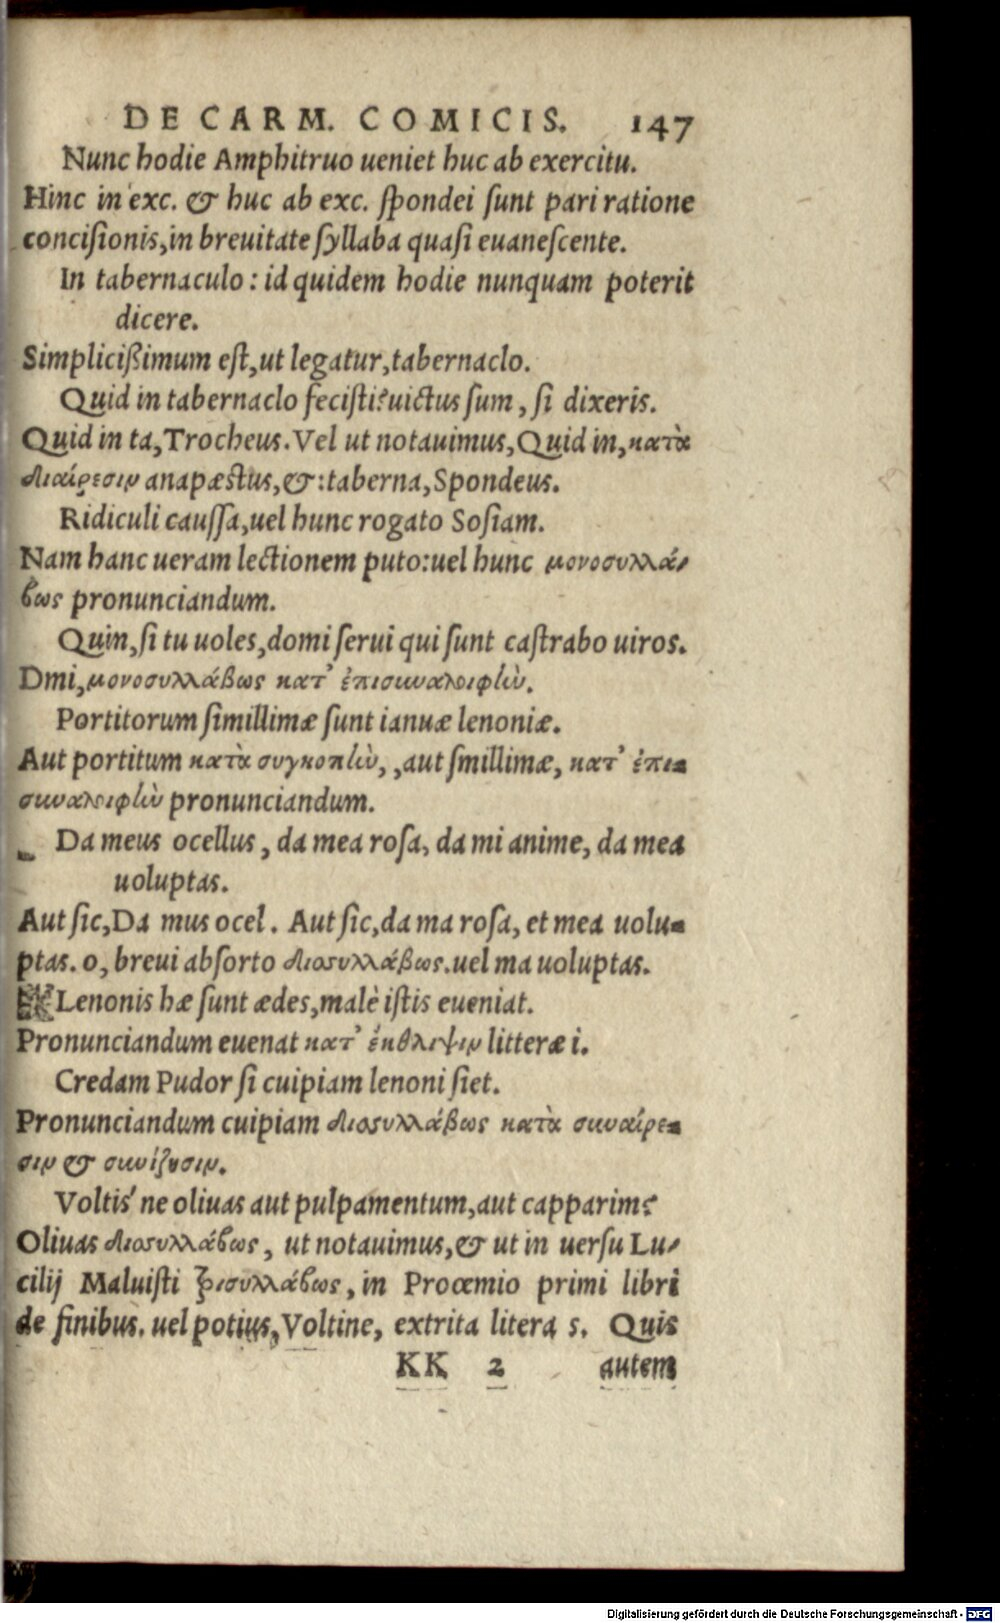 DE CARM. COMICIS. 147
Nunc hodie Amphitruo ueniet huc ab exercitu.
Hinc in exc. & huc ab exc. ſpondei ſunt pari ratione
conciſionis, in breuitate ſyllaba quaſi euaneſcente.
In tabernaculo: id quidem hodie nunquam poterit
dicere.
Simpliciſſimum eſt, ut legatur, tabernaclo.
Quid in tabernaclo feciſti? uictus ſum, ſi dixeris.
Quid in ta, Trocheus. Vel ut notauimus, Quid in, κατὰ
διαίρεσιν anapæstus, &: taberna, Spondeus.
Ridiculi cauſſa, uel hunc rogato Soſiam.
Nam hanc ueram lectionem puto: uel hunc μονοσυλλά-
βως pronunciandum.
Quin, ſi tu uoles, domi ſerui qui ſunt caſtrabo uiros.
Dmi, μονοσυλλάβως κατ' ἐπισυναλοιφὴν.
Portitorum ſimillimæ ſunt ianuæ lenoniæ.
Aut portitum κατὰ συγκοπὴν, , aut ſmillimæ, κατ' ἐπι-
συναλοιφὴν pronunciandum.
Da meus ocellus, da mea roſa, da mi anime, da mea
uoluptas.
Aut ſic, Da mus ocel. Aut ſic, da ma roſa, et mea uolu-
ptas. o, breui abſorto δισυλλάβως. uel ma uoluptas.
Lenonis hæ ſunt ædes, malè iſtis eueniat.
Pronunciandum euenat κατ' ἔκθλιψιν litteræ i.
Credam Pudor ſi cuipiam lenoni ſiet.
Pronunciandum cuipiam δισυλλάβως κατὰ συναίρε-
σιν & συνίζησιν.
Voltis' ne oliuas aut pulpamentum, aut capparim?
Oliuas δισυλλάβως, ut notauimus, & ut in uerſu Lu-
cilij Maluiſti τρισυλλάβως, in Proœmio primi libri
de finibus. uel potius, Voltine, extrita litera s. Quis
KK 2 autem
Digitalisierung gefördert durch die Deutsche Forschungsgemeinschaft - DFG